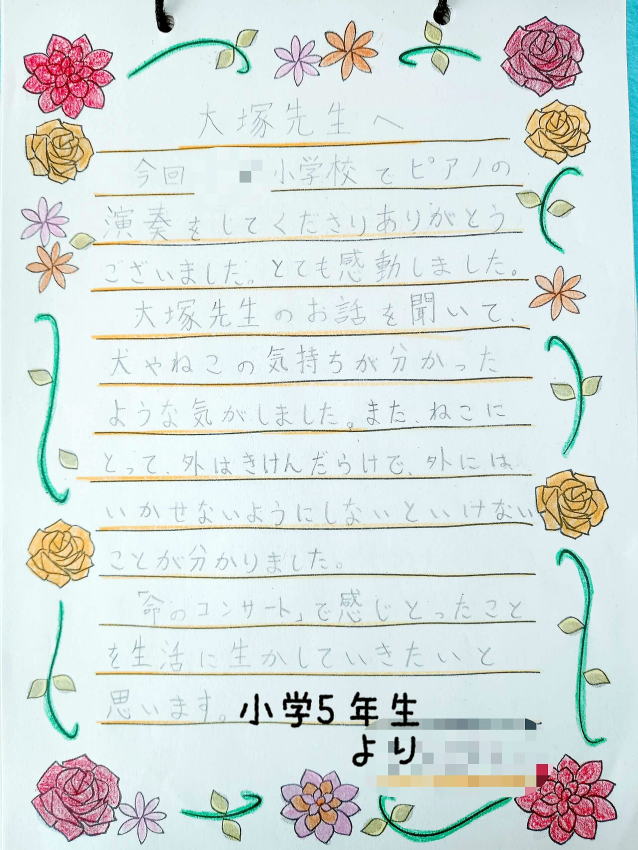 大塚先生へ
今回 小学校でピアノの
演奏をしてくださりありがとう
ございました。とても感動しました。
大塚先生のお話を聞いて、
犬やねこの気持ちが分かった
ような気がしました。また、ねこに
とって、外はきけんだらけで、外には
いかせないようにしないといけない
ことが分かりました。
「命のコンサート」で感じとったこと
を生活に生かしていきたいと
思います。小学5年生
より